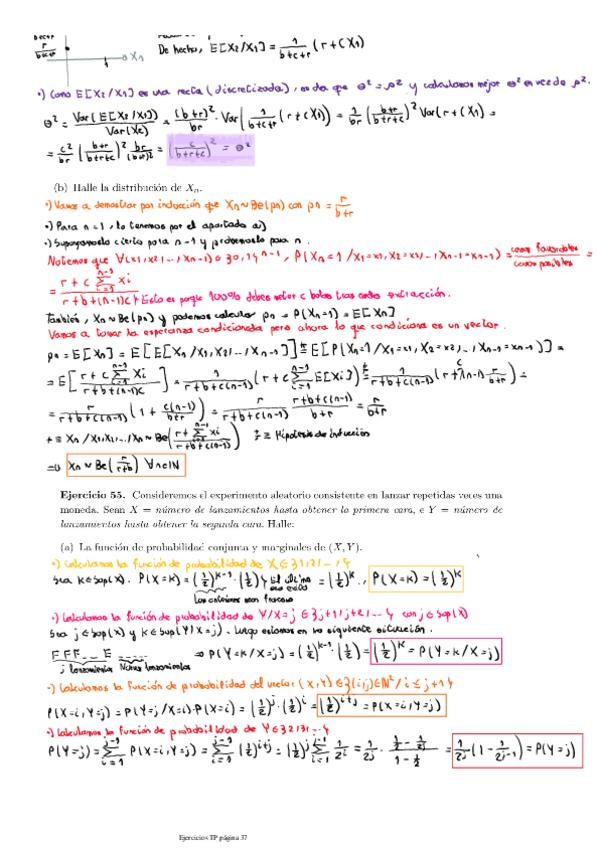 r
b+c+r
1
X₁
De hecho, E[X₂/X₁] = 1/(b+c+r) (r+cX₁)
•) Como E[X₂/X₁] es una recta (discretizada), es da que θ² = ρ² y calculamos mejor θ² en vez de ρ².
θ² = Var(E[X₂/X₁])/Var(X₂) = (b+r)²/br · Var(1/(b+c+r) (r+cX₁)) = 1/br ((b+r)/(b+r+c))² Var(r+cX₁) =
= c²/br ((b+r)/(b+r+c))² br/(b+r)² = (c/(b+r+c))² = θ²
(b) Halle la distribución de Xₙ.
•) Vamos a demostrar por inducción que Xₙ ~ Be(pₙ) con pₙ = r/(b+r)
•) Para n=1, lo tenemos por el apartado a)
•) Supongámoslo cierto para n-1 y probémoslo para n.
Notemos que ∀(x₁,x₂,...,xₙ₋₁) ∈ {0,1}ⁿ⁻¹, P(Xₙ=1/X₁=x₁,X₂=x₂,...,Xₙ₋₁=xₙ₋₁) = casos favorables/casos posibles =
= (r+c Σᵢ₌₁ⁿ⁻¹ xᵢ)/(r+b+(n-1)c) } Esto es porque 100% debes meter c bolas tras cada extracción.
También, Xₙ ~ Be(pₙ) y podemos calcular pₙ = P(Xₙ=1) = E[Xₙ]
Vamos a tomar la esperanza condicionada pero ahora lo que condiciona es un vector.
pₙ = E[Xₙ] = E[E[Xₙ/X₁,X₂,...,Xₙ₋₁]] ‡= E[P(Xₙ=1/X₁=x₁,X₂=x₂,...,Xₙ₋₁=xₙ₋₁)] =
= E[(r+c Σᵢ₌₁ⁿ⁻¹ Xᵢ)/(r+b+(n-1)c)] = 1/(r+b+c(n-1)) (r+c Σᵢ₌₁ⁿ⁻¹ E[Xᵢ]) = 1/(r+b+c(n-1)) (r+c(n-1) r/(b+r)) =
= r/(r+b+c(n-1)) (1 + c(n-1)/(b+r)) = r/(r+b+c(n-1)) · (r+b+c(n-1))/(b+r) = r/(b+r)
‡ ≡ Xₙ/X₁,X₂,...,Xₙ₋₁ ~ Be((r+c Σᵢ₌₁ⁿ⁻¹ xᵢ)/(r+b+c(n-1))) ≡ Hipótesis de inducción
⇒ Xₙ ~ Be(r/(r+b)) ∀n∈ℕ
Ejercicio 55. Consideremos el experimento aleatorio consistente en lanzar repetidas veces una
moneda. Sean X = número de lanzamientos hasta obtener la primera cara, e Y = número de
lanzamientos hasta obtener la segunda cara. Halle:
(a) La función de probabilidad conjunta y marginales de (X, Y).
•) Calculamos la función de probabilidad de X ∈ {1,2,...}
Sea k∈Sop(X). P(X=k) = (1/2)ᵏ⁻¹ · (1/2) } El último es éxito = (1/2)ᵏ, P(X=k) = (1/2)ᵏ
Los anteriores son fracaso
•) Calculamos la función de probabilidad de Y/X=j ∈ {j+1,j+2,...} con j∈Sop(X)
Sea j∈Sop(X) y k∈Sop(Y/X=j). Luego estamos en la siguiente situación.
F F F ... E ... ⇒ P(Y=k/X=j) = (1/2)ᵏ⁻¹ (1/2) = (1/2)ᵏ = P(Y=k/X=j)
j lanzamientos Nuevos lanzamientos
•) Calculamos la función de probabilidad del vector (X,Y) ∈ {(i,j)∈ℕ²/i≤j+1}
P(X=i,Y=j) = P(Y=j/X=i)·P(X=i) = (1/2)ʲ·(1/2)ⁱ = (1/2)ⁱ⁺ʲ = P(X=i,Y=j)
•) Calculamos la función de probabilidad de Y∈{2,3,...}
P(Y=j) = Σᵢ₌₁ʲ⁻¹ P(X=i,Y=j) = Σᵢ₌₁ʲ⁻¹ (1/2)ⁱ⁺ʲ = (1/2)ʲ Σᵢ₌₁ʲ⁻¹ 1/2ⁱ = 1/2ʲ · (1/2 - 1/2ʲ)/(1 - 1/2) = 1/2ʲ (1 - 1/2ʲ⁻¹) = P(Y=j)
Ejercicios TP página 37